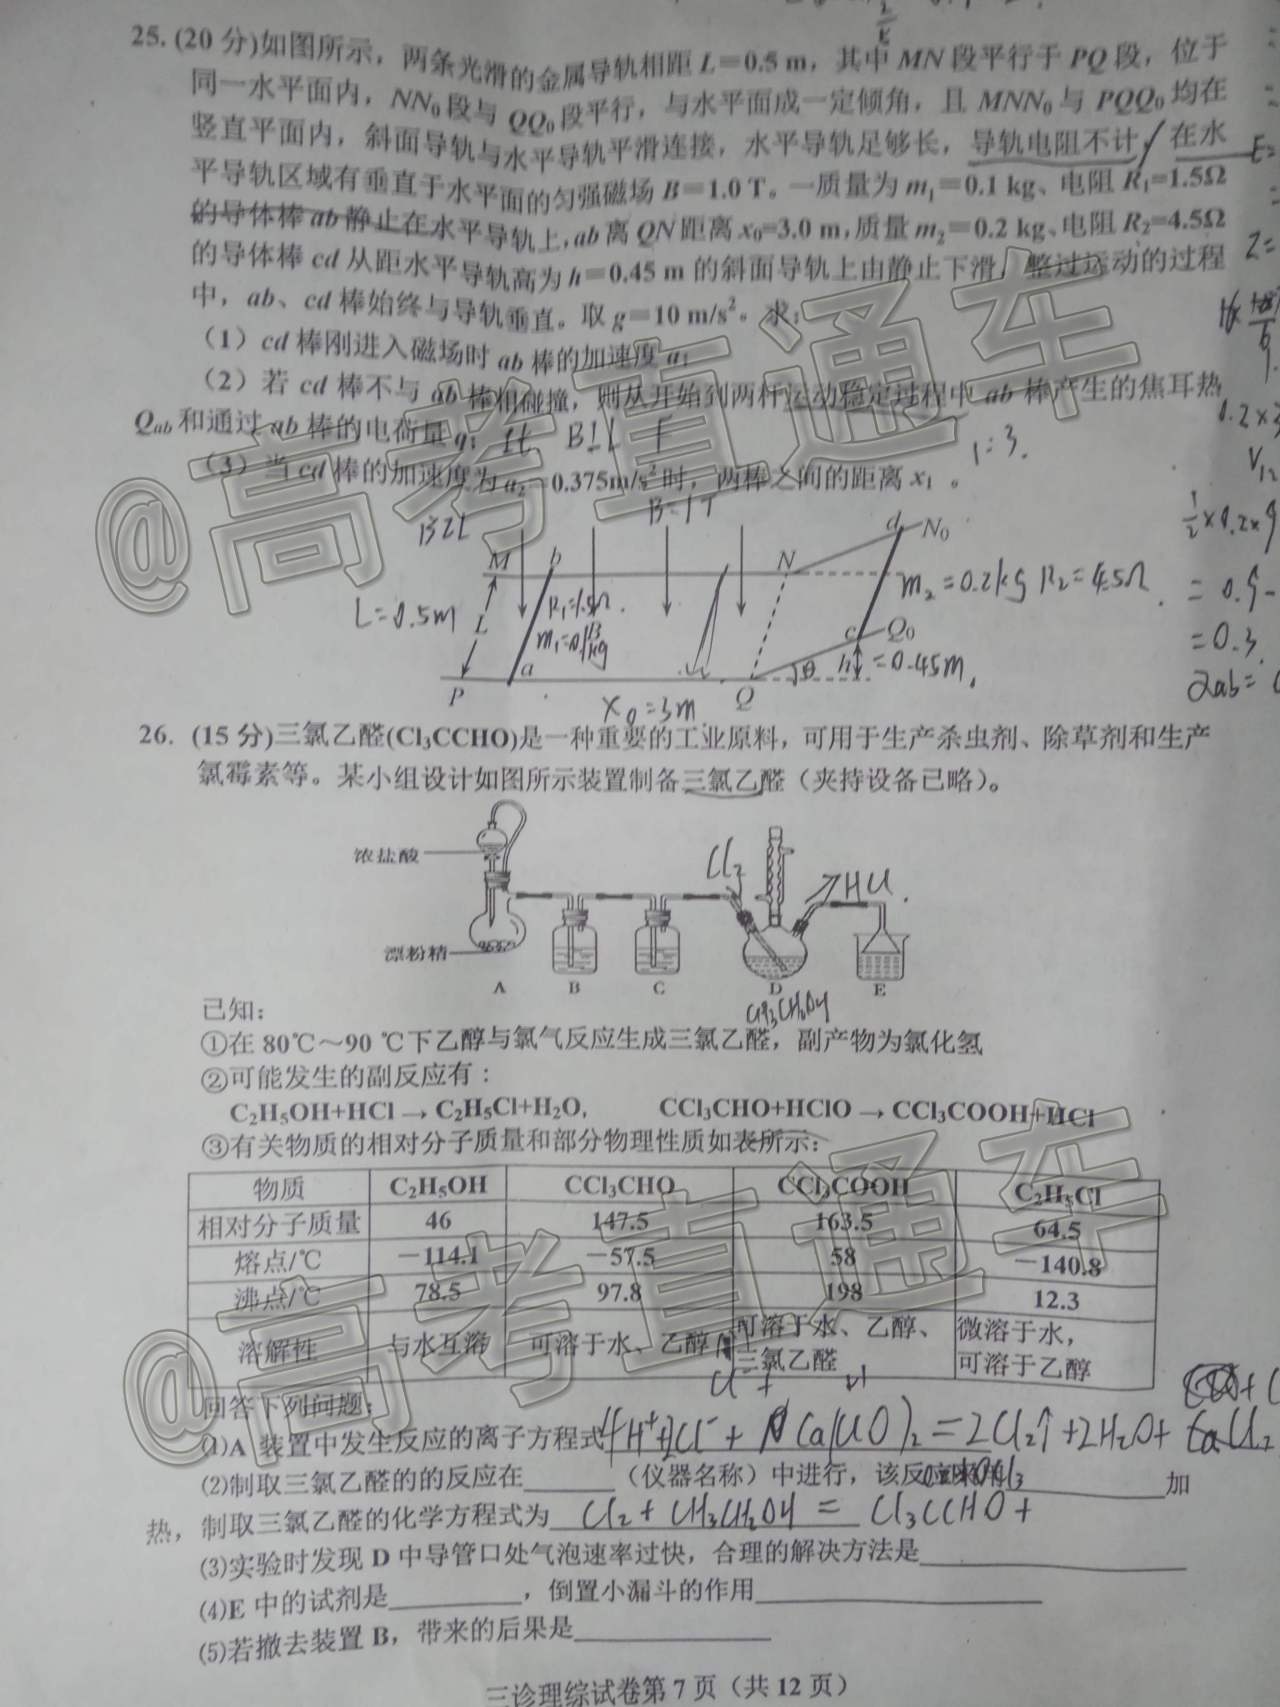 25. (20 分)如图所示，两条光滑的金属导轨相距 L＝0.5 m，其中 MN 段平行于 PQ 段，位于
同一水平面内，NN₀ 段与 QQ₀ 段平行，与水平面成一定倾角，且 MNN₀ 与 PQQ₀ 均在
竖直平面内，斜面导轨与水平导轨平滑连接，水平导轨足够长，导轨电阻不计，在水
平导轨区域有垂直于水平面的匀强磁场 B＝1.0 T。一质量为 m₁＝0.1 kg、电阻 R₁=1.5Ω
的导体棒 ab 静止在水平导轨上，ab 离 QN 距离 x₀=3.0 m，质量 m₂＝0.2 kg、电阻 R₂=4.5Ω
的导体棒 cd 从距水平导轨高为 h＝0.45 m 的斜面导轨上由静止下滑，整过运动的过程
中，ab、cd 棒始终与导轨垂直。取 g＝10 m/s²。求：
（1）cd 棒刚进入磁场时 ab 棒的加速度 a；
（2）若 cd 棒不与 ab 棒相碰撞，则从开始到两杆运动稳定过程中 ab 棒产生的焦耳热
Qab 和通过 ab 棒的电荷量 q；
1:3.
（3）当 cd 棒的加速度为 a₂＝0.375m/s² 时，两棒之间的距离 x₁ 。
B=1T
BIL
M b N d N₀
m₂=0.2kg R₂=4.5Ω
L=0.5m L R₁=1.5Ω
m₁=0.1kg
c Q₀
a θ h =0.45M.
P Q
x₀=3m
26. (15 分)三氯乙醛(Cl₃CCHO)是一种重要的工业原料，可用于生产杀虫剂、除草剂和生产
氯霉素等。某小组设计如图所示装置制备三氯乙醛（夹持设备已略）。
浓盐酸
Cl₂ HCl
漂粉精
A B C D E
已知：
①在 80℃～90 ℃下乙醇与氯气反应生成三氯乙醛，副产物为氯化氢
②可能发生的副反应有：
C₂H₅OH+HCl → C₂H₅Cl+H₂O, CCl₃CHO+HClO → CCl₃COOH+HCl
③有关物质的相对分子质量和部分物理性质如表所示：
物质 C₂H₅OH CCl₃CHO CCl₃COOH C₂H₅Cl
相对分子质量 46 147.5 163.5 64.5
熔点/℃ －114.1 －57.5 58 －140.8
沸点/℃ 78.5 97.8 198 12.3
溶解性 与水互溶 可溶于水、乙醇 可溶于水、乙醇、三氯乙醛 微溶于水，可溶于乙醇
回答下列问题：
(1)A 装置中发生反应的离子方程式 4H⁺+2Cl⁻+Ca(ClO)₂=2Cl₂↑+2H₂O+
(2)制取三氯乙醛的的反应在______（仪器名称）中进行，该反应采用__________加
热，制取三氯乙醛的化学方程式为 Cl₂ + CH₃CH₂OH = Cl₃CCHO +
(3)实验时发现 D 中导管口处气泡速率过快，合理的解决方法是__________
(4)E 中的试剂是________，倒置小漏斗的作用__________
(5)若撤去装置 B，带来的后果是__________
三诊理综试卷第 7 页（共 12 页）
@高考直通车
@高考直通车